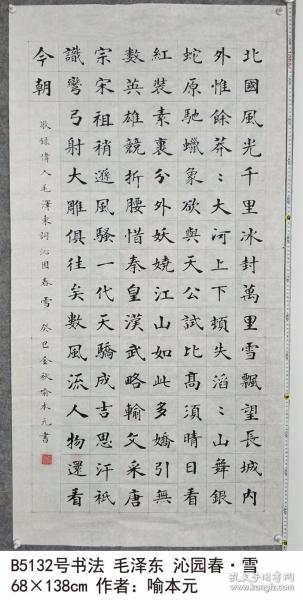 北國風光千里冰封萬里雪飄望長城内
外惟餘莽〻大河上下頓失滔〻山舞銀
蛇原馳蠟象欲與天公試比高須晴日看
紅裝素裹分外妖嬈江山如此多嬌引無
數英雄競折腰惜秦皇漢武略輸文采唐
宗宋祖稍遜風騷一代天驕成吉思汗祇
識彎弓射大雕俱往矣數風流人物還看
今朝
敬錄偉人毛澤東詞沁園春雪 癸巳金秋喻本元書
B5132号书法 毛泽东 沁园春·雪
68×138cm 作者：喻本元